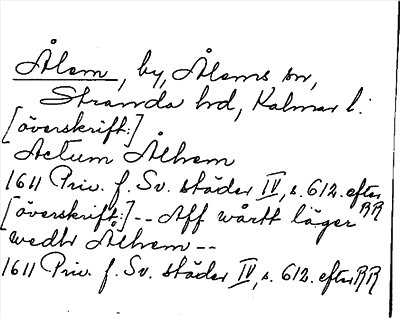 Ålem, by, Ålems sn,
Stranda hd, Kalmar l.
[överskrift:]
Actum Ålhem
1611 Priv. f. Sv. städer IV, s. 612. efter RR
[överskrift:] -- Aff wårtt läger
wedh Ålhem --
1611 Priv. f. Sv. städer IV, s. 612. efter RR